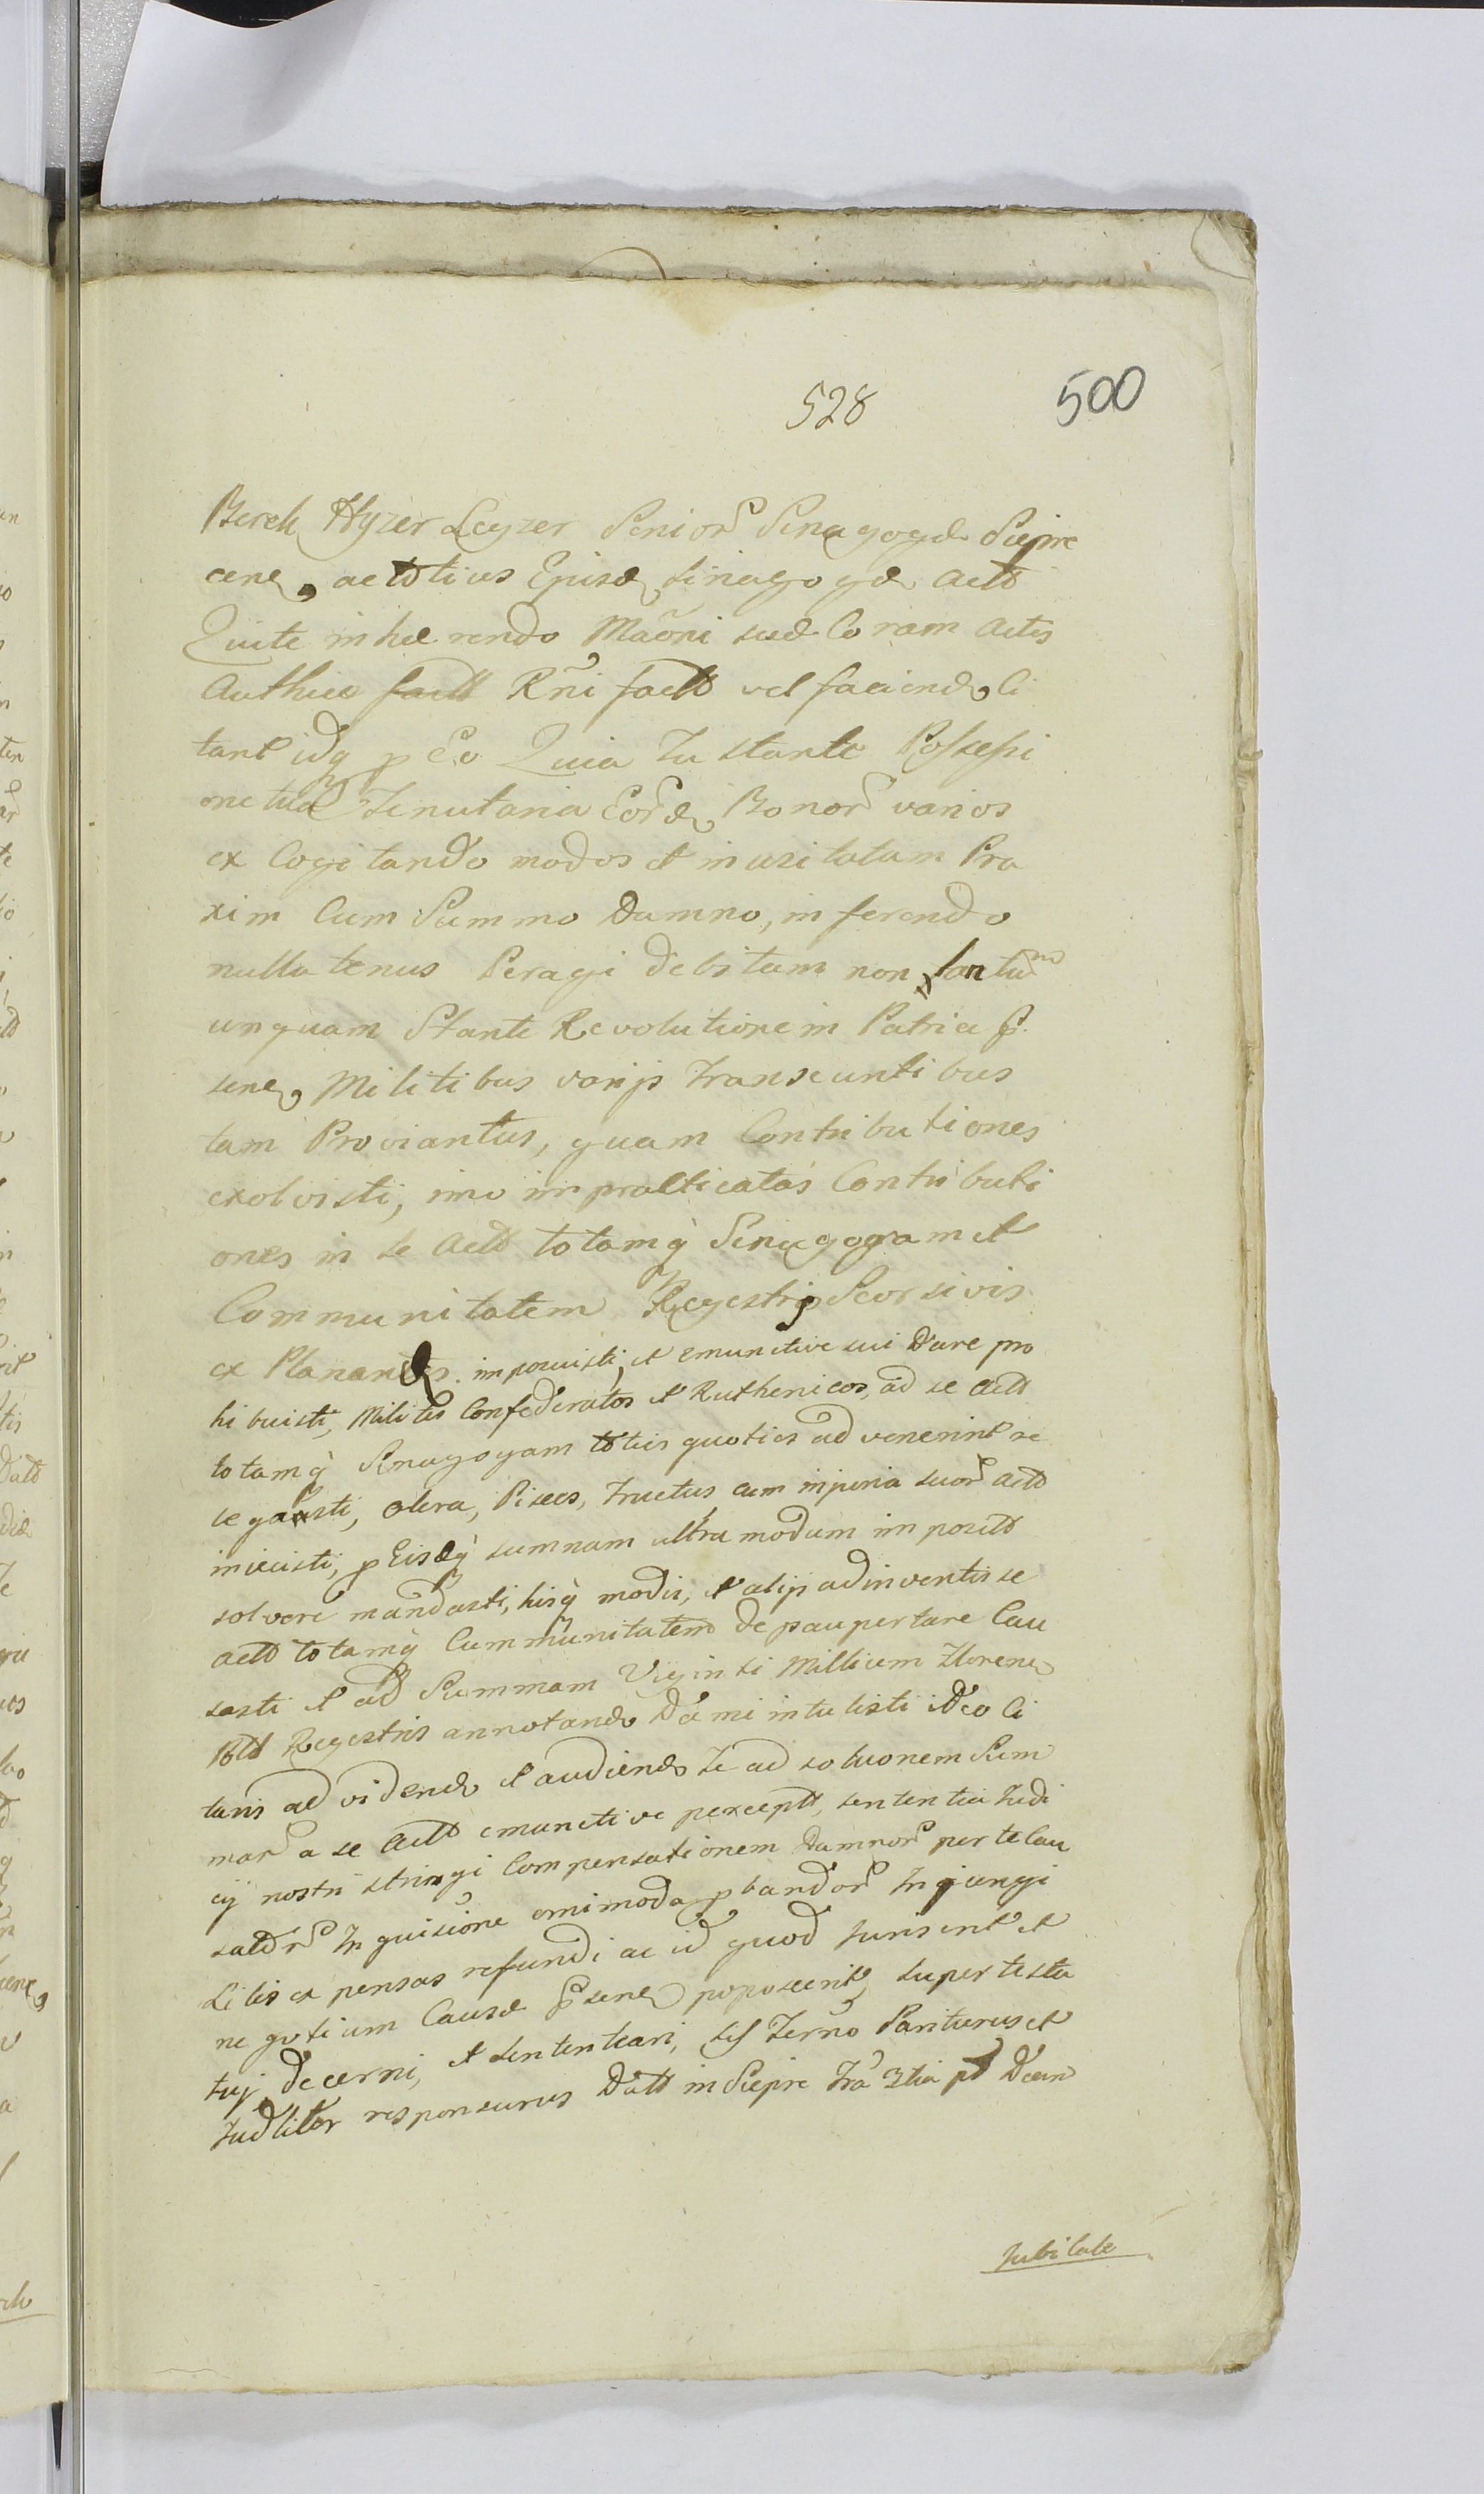 528
500
Berek Hyzer Leyzer Senior Sinagogæ Siepre
cen, ac totius Ejusd Sinagogæ Actt
Quite inhærendo Maõni suæ Coram Actis
Authico Rñi factt vel faciend Ci
tant idq p Eo Quia Tu stante Possessi
one tua Tenutaria Eord Bonor varios
ex Cogitando modos et inusitatam Pra
xim Cum Summo Damno, inferendo
nulla tenus Peragi debitam non tantum
unquam Stante Revolutione in Patria P.
sene, Militibus varijs transeuntibus
tam Proviantus, quam Contributiones
exolvisti, imo impracticatas Contributi
ones in se Actt totamq Sinagogam et
Communitatem Regestris Seorsivis
ex Planandis imposuisti, et emunctive sui Dare pro
hibuisti, Milites Confederatos et Ruthenicos, ad se Actt
totamq Sinagogam toties quoties advenerint re
legasti, olera, Pisces, Fructus cum injuria suor Actt
iniecisti, p Eisdq summam ultra modum imposittt
solvere mandasti, hisq modis, et alijs adinventis se
actt totamq Cummunitatem depaupertare Cau
sasti et ad Summam Viginti Millium Floren
Poltt Regestris annotand Damni intulisti ideo Ci
taris ad vidend et audiend Te ad soluonem Sum
mar a se Actt emunctive perceptt, sententia Judi
cij nostri stringi Compensationem Damnor per te Cau
sator Inquisione omimoda pbandor Injungi
Litis expensas refundi ac id quod Juris erit et
negotium Causæ Psene poposcerit, super testa
tuj decerni, et sententiari, sis Terño Pariturus et
Judliter responsurus Datt in Siepre Fra 3tia pt Dcam
Jubilate